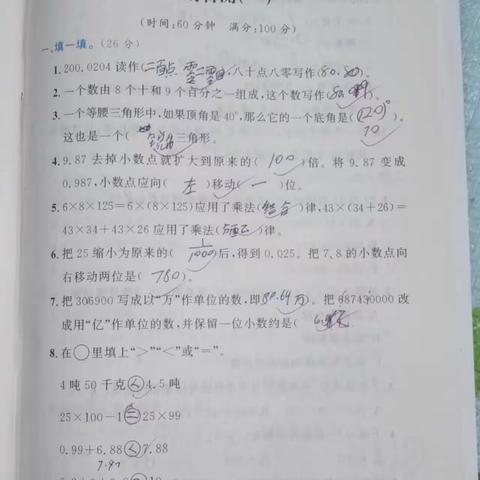 (时间:60分钟 满分:100分)
一、填一填。(26分)
1. 200.0204读作(二百点零二零四),八十点八零写作(80.80)。
2. 一个数由8个十和9个百分之一组成,这个数写作( )。
3. 一个等腰三角形中,如果顶角是40°,那么它的一个底角是( 70 )°。
这也是一个( 三角形。
4. 9.87去掉小数点就扩大到原来的( 100 )倍。将9.87变成
0.987,小数点应向( 左 )移动( 一 )位。
5. 6×8×125=6×(8×125)应用了乘法(结合)律,43×(34+26)=
43×34+43×26应用了乘法( )律。
6. 把25缩小为原来的( 1/1000 )后,得到0.025。把7.8的小数点向
右移动两位是( 780 )。
7. 把306900写成以“万”作单位的数,即( 万)。把987430000改
成用“亿”作单位的数,并保留一位小数约是( )
8. 在○里填上“>”“<”或“=”。
4吨50千克<4.5吨
25×100-1=25×99
0.99+6.88<7.88
7.87